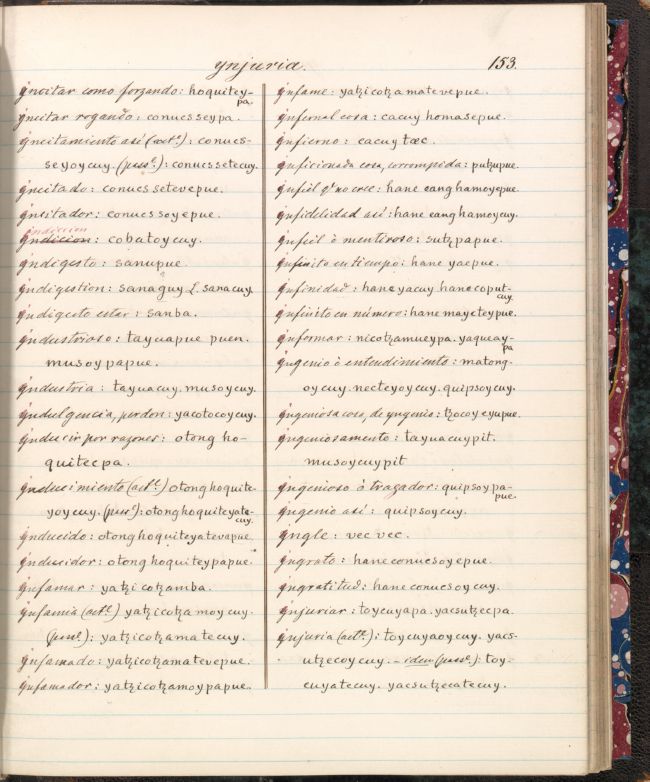 ynjuria.
153.
ÿncitar como forzando: hoquitey-
pa.
ÿncitar rogando: conucsseypa.
ÿncitamiento así (act.e): conucs-
seyoycuy. (pass.e): conucssetecuy.
ÿncitado: conucssetevepue.
ÿncitador: conucssoyepue.
yndiccion
ÿndicion: cobatoycuy.
ÿndigesto: sanupue.
ÿndigestion: sanaguy L. sanacuy
ÿndigesto estar: sanba.
ÿndustrioso: tayuapue puen.
musoypapue.
ÿndustria: tayuacuy. musoycuy.
ÿndulgencia, perdon: yacotocoycuy.
ÿnducir por razones: otong ho-
quitecpa.
ÿnducimiento (act.e) otonghoquite-
yoycuy. (pass.e): otonghoquiteyate-
cuy.
ÿnducido: otonghoquiteyatevapue.
ÿnducidor: otonghoquiteypapue.
ÿnfamar: yatzicotzamba.
ÿnfamia (act.e) yatzicotzamoycuy.
(pass.e): yatzicotzamatecuy.
ÿnfamado: yatzicotzamatevepue.
ÿnfamador: yatzicotzamoypapue.
ÿnfame: yatzicotzamatevepue.
ÿnfernal cosa: cacuyhomasepue.
ÿnfierno: cacuytœc.
ÿnficionada cosa, corrompida: putzupue.
ÿnfiel q.e no cree: hane eanghamoyepue.
ÿnfidelidad así: hane eanghamoycuy.
ÿnfiel ò mentiroso: sutzpapue.
ÿnfinito en tiempo: hane yaepue.
ÿnfinidad: haneyacuy hanecoput-
cuy.
ÿnfinito en número: hane mayeteypue.
ÿnformar: nicotzamueypa. yaqueay-
pa
ÿngenio ò entendimiento: matong-
oycuy. necteyoycuy. quipsoycuy.
ÿngeniosa cosa, de yngenio: tzocoyeyupue.
ÿngeniosamente: tayuacuypit.
musoycuypit
ÿngenioso ò trazador: quipsoypa-
pue.
ÿngenio así: quipsoycuy.
ÿngle: vecvec.
ÿngrato: haneconucsoyepue.
ÿngratitud: haneconucsoycuy.
ÿnjuriar: toycuyapa. yacsutzecpa.
ÿnjuria (act.e): toycuyaoycuy. yacs-
utzecoycuy. – idem (pass.e): toy-
cuyatecuy. yacsutzecatecuy.